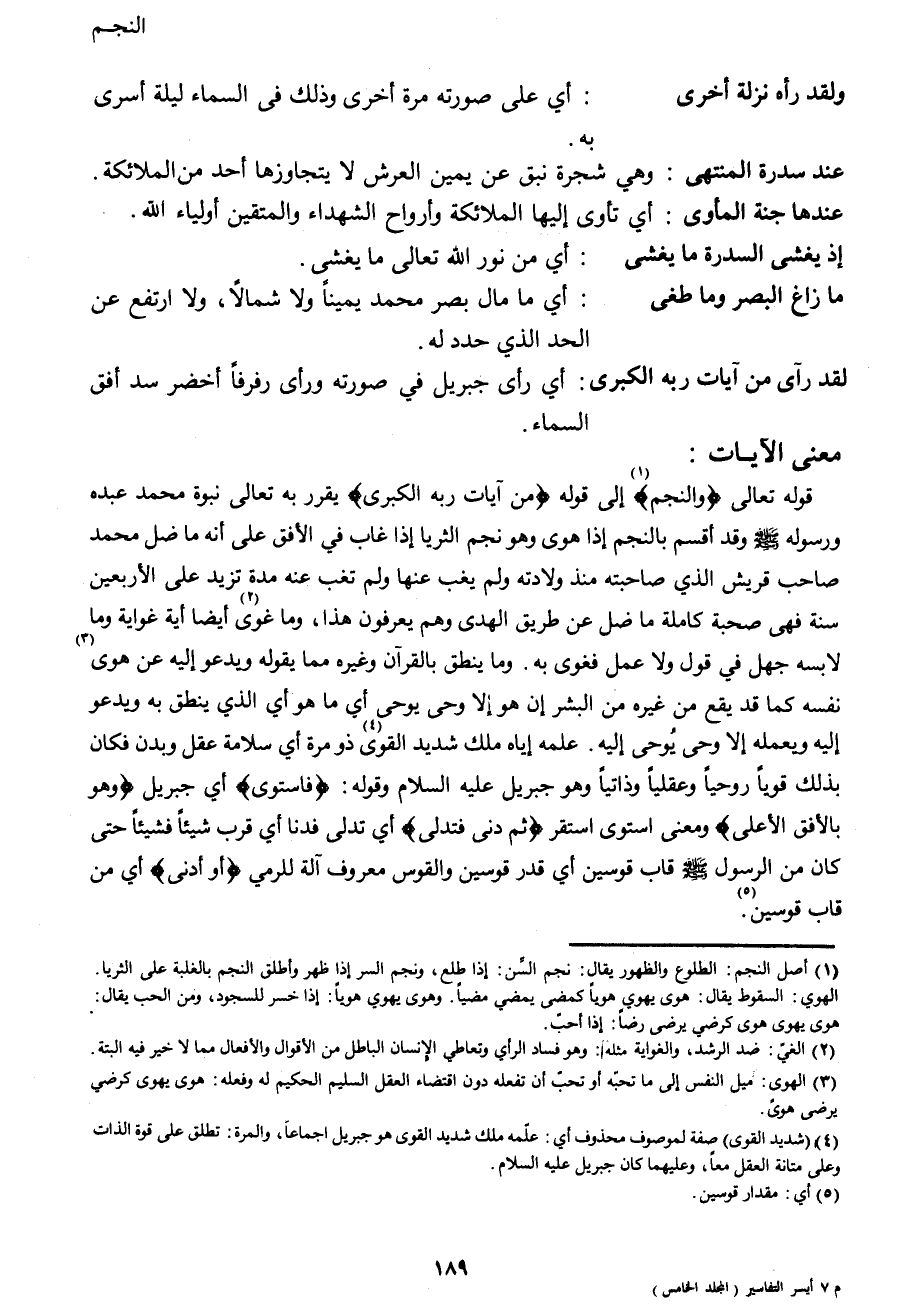 النجـم
ولقد رأه نزلة أخرى : أي على صورته مرة أخرى وذلك فى السماء ليلة أسرى
به .
عند سدرة المنتهى : وهي شجرة نبق عن يمين العرش لا يتجاوزها أحد من الملائكة .
عندها جنة المأوى : أي تأوى إليها الملائكة وأرواح الشهداء والمتقين أولياء الله .
إذ يغشى السدرة ما يغشى : أي من نور الله تعالى ما يغشى .
ما زاغ البصر وما طغى : أي ما مال بصر محمد يميناً ولا شمالًا، ولا ارتفع عن
الحد الذي حدد له .
لقد رآى من آيات ربه الكبرى : أي رأى جبريل في صورته ورأى رفرفاً أخضر سد أفق
السماء .
معنى الآيـات :
قوله تعالى ﴿والنجم﴾(١) إلى قوله ﴿من آيات ربه الكبرى﴾ يقرر به تعالى نبوة محمد عبده
ورسوله ﷺ وقد أقسم بالنجم إذا هوى وهو نجم الثريا إذا غاب في الأفق على أنه ما ضل محمد
صاحب قريش الذي صاحبته منذ ولادته ولم يغب عنها ولم تغب عنه مدة تزيد على الأربعين
سنة فهى صحبة كاملة ما ضل عن طريق الهدى وهم يعرفون هذا، وما غوى(٢) أيضا أية غواية وما
لابسه جهل في قول ولا عمل فغوى به . وما ينطق بالقرآن وغيره مما يقوله ويدعو إليه عن هوى(٣)
نفسه كما قد يقع من غيره من البشر إن هو إلا وحى يوحى أي ما هو أي الذي ينطق به ويدعو
إليه ويعمله إلا وحى يُوحى إليه . علمه إياه ملك شديد القوى(٤) ذو مرة أي سلامة عقل وبدن فكان
بذلك قوياً روحياً وعقلياً وذاتياً وهو جبريل عليه السلام وقوله : ﴿فاستوى﴾ أي جبريل ﴿وهو
بالأفق الأعلى﴾ ومعنى استوى استقر ﴿ثم دنى فتدلى﴾ أي تدلى فدنا أي قرب شيئاً فشيئاً حتى
كان من الرسول ﷺ قاب قوسين أي قدر قوسين والقوس معروف آلة للرمي ﴿أو أدنى﴾ أي من
قاب قوسين(٥) .
(١) أصل النجم : الطلوع والظهور يقال : نجم السِّن : إذا طلع، ونجم السر إذا ظهر وأطلق النجم بالغلبة على الثريا .
الهوي : السقوط يقال : هوى يهوي هوياً كمضى يمضي مضياً . وهوى يهوي هوياً : إذا خسر للسجود، ومن الحب يقال :
هوى يهوى هوى كرضي يرضى رضاً : إذا أحبّ .
(٢) الغيّ : ضد الرشد، والغواية مثله : وهو فساد الرأي وتعاطي الإنسان الباطل من الأقوال والأفعال مما لا خير فيه البتة .
(٣) الهوى : ميل النفس إلى ما تحبّه أو تحبّ أن تفعله دون اقتضاء العقل السليم الحكيم له وفعله : هوى يهوى كرضي
يرضى هوىً .
(٤) (شديد القوى) صفة لموصوف محذوف أي : علّمه ملك شديد القوى هو جبريل اجماعاً، والمرة : تطلق على قوة الذات
وعلى متانة العقل معاً، وعليهما كان جبريل عليه السلام .
(٥) أي : مقدار قوسين .
١٨٩
م ٧ أيسر التفاسير ( المجلد الخامس )